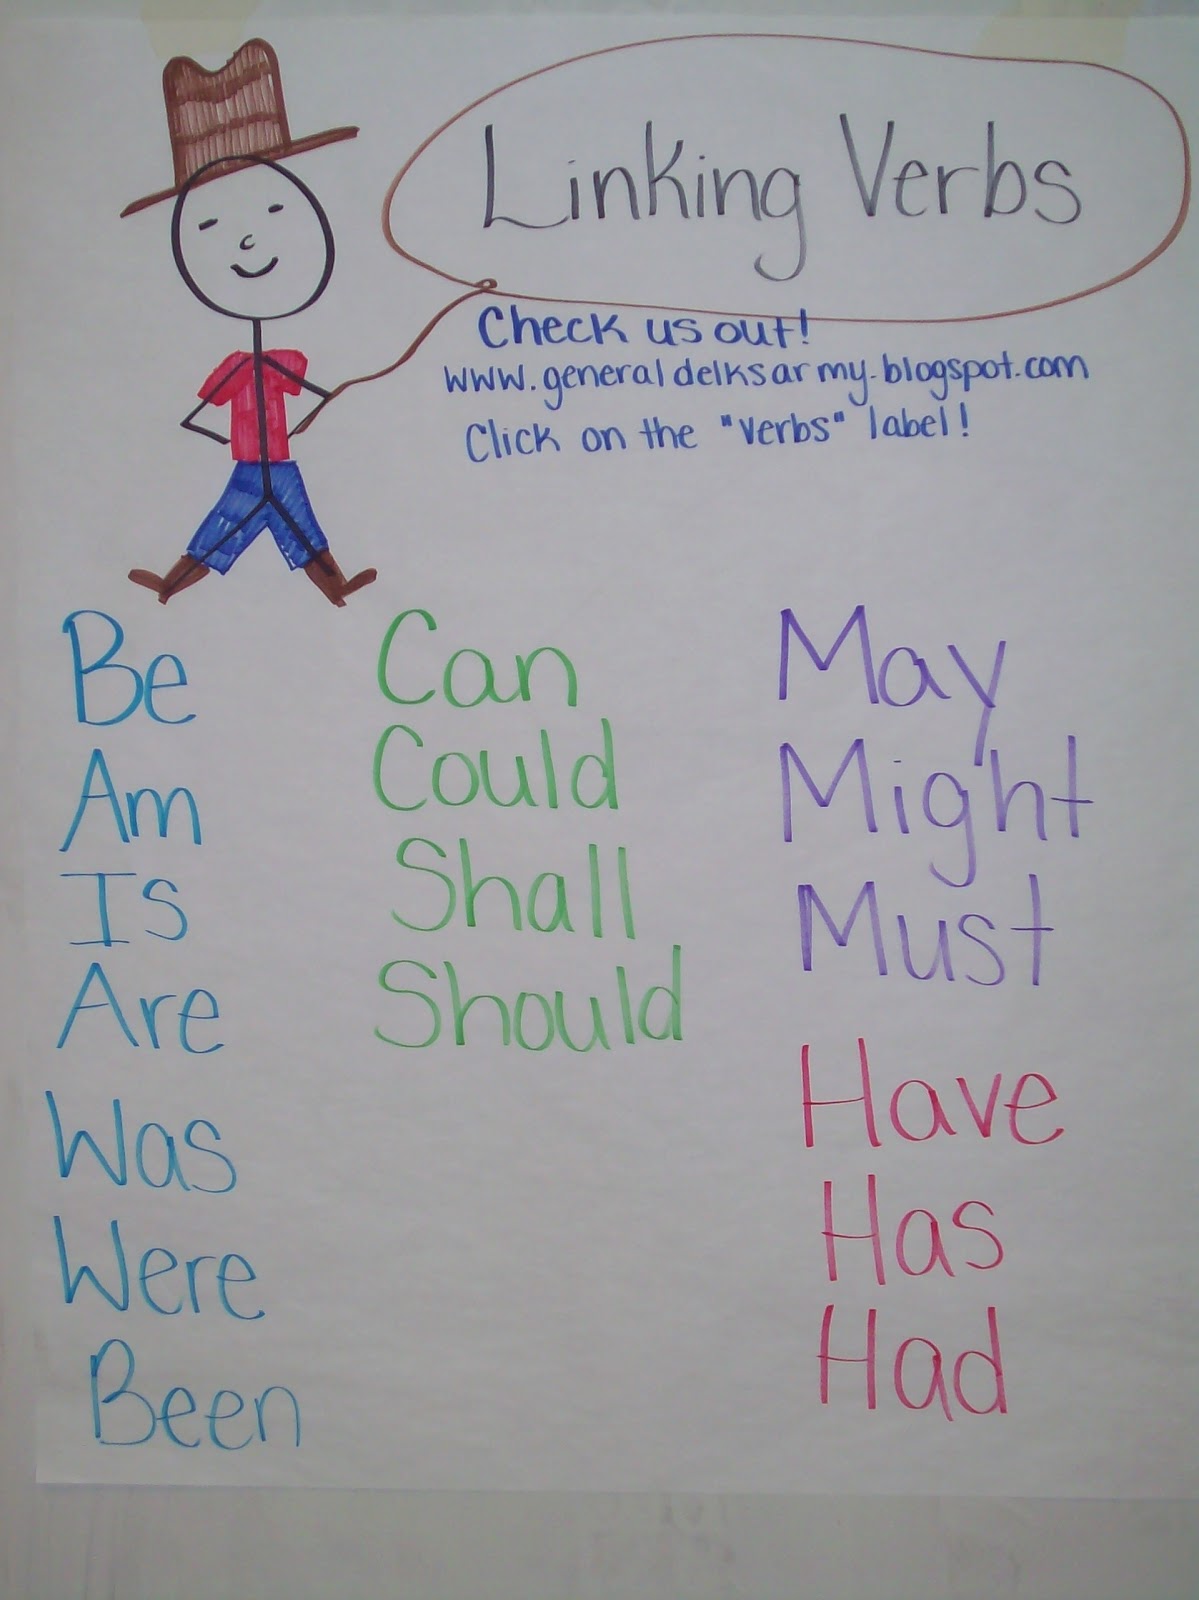 Linking Verbs
Check us out!
www.generaldelksarmy.blogspot.com
Click on the "verbs" label!
Be
Am
Is
Are
Was
Were
Been
Can
Could
Shall
Should
May
Might
Must
Have
Has
Had